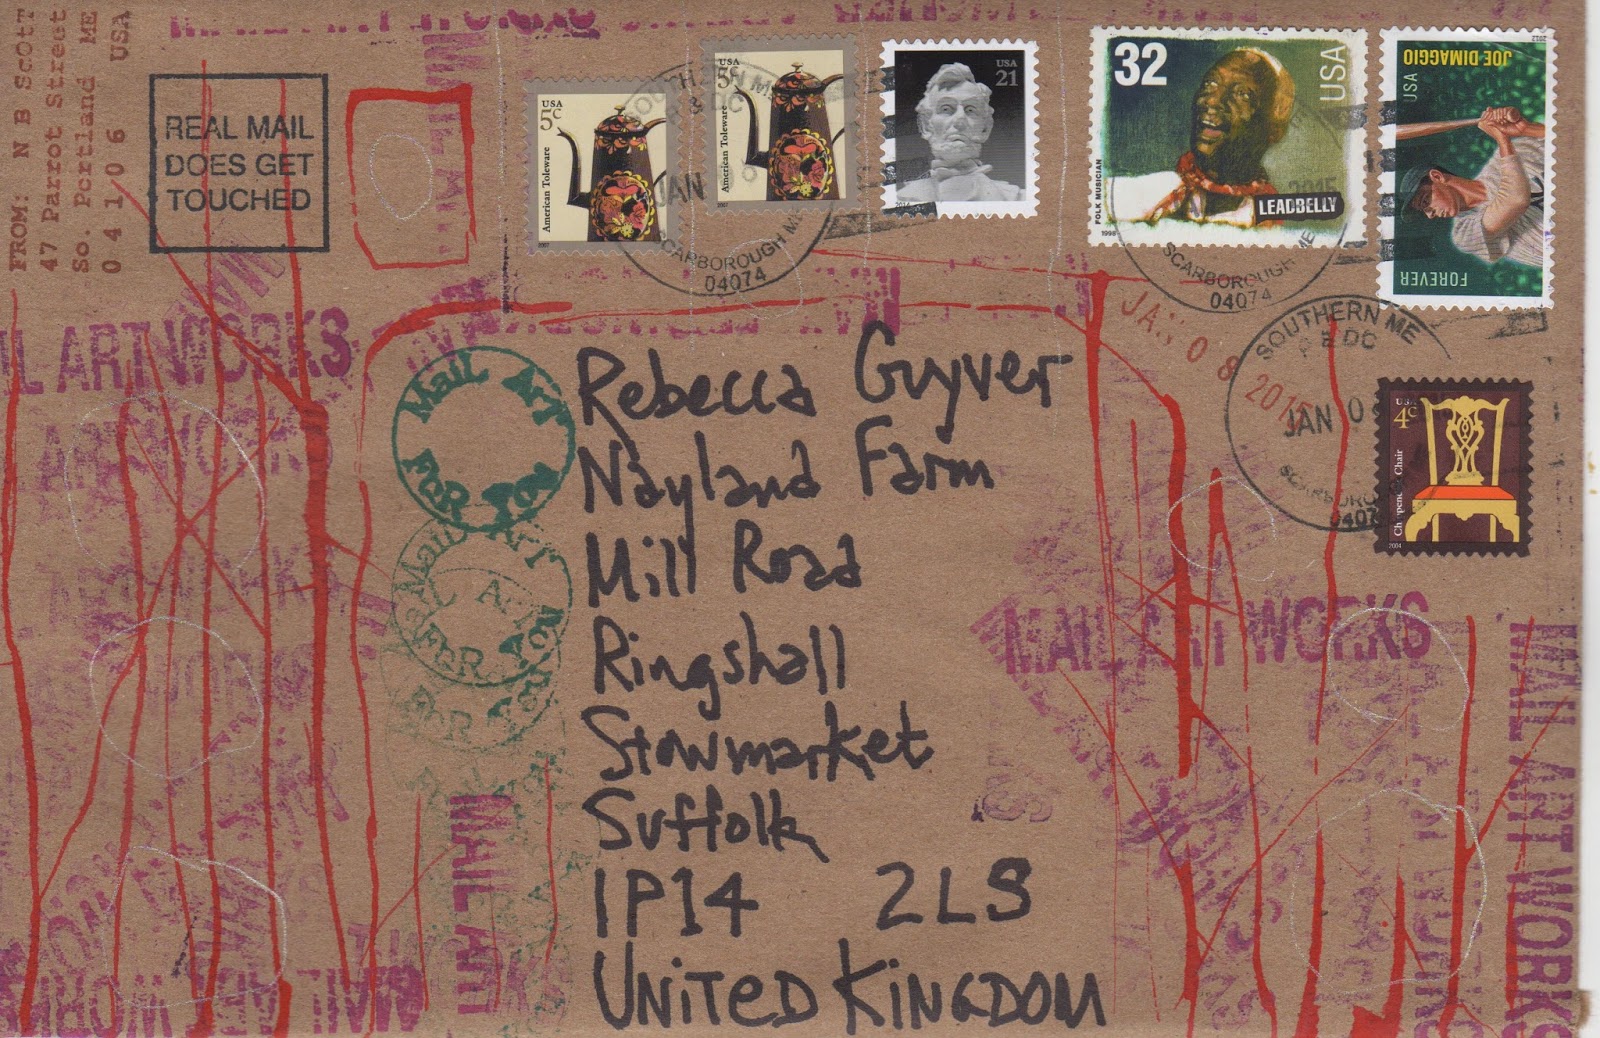 FROM: N B Scott
47 Parrot Street
So. Portland ME
04106 USA
REAL MAIL
DOES GET
TOUCHED
USA
5c
American Toleware
2007
USA
5c
American Toleware
2007
USA
21
32
USA
FOLK MUSICIAN
LEADBELLY
1998
2012
JOE DIMAGGIO
USA
FOREVER
SCARBOROUGH ME
04074
SCARBOROUGH ME
04074
JAN 08 2015
SOUTHERN ME
P & DC
JAN 0
SCARBOROUGH
USA
4c
Chippendale Chair
2004
MAIL ART WORKS
Mail Art
For You
Mail Art
For You
Rebecca Guyver
Nayland Farm
Mill Road
Ringshall
Stowmarket
Suffolk
IP14 2LS
UNITED KINGDOM
MAIL ART WORKS
MAIL ART WORKS
MAIL ART
MAIL ART WORKS